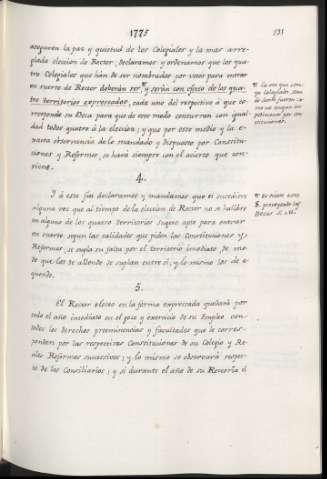 1775
131
aseguren la paz y quietud de los Colegiales y la mas arre-
glada eleccion de Rector, declaramos y ordenamos que los qua-
tro Colegiales que han de ser nombrados por votos para entrar
en suerte de Rector deberán ser, y serán con efecto de los qua-
tro territorios expresados, cada uno del respectivo à que co-
rresponde su Beca para que de este modo concurran con igual-
dad todos quatro à la eleccion; y que por este medio y la e-
xacta observancia de lo mandado y dispuesto por Constitu-
ciones y Reformas, se hará siempre con el acierto que con-
viene.
4.
Y à este fin declaramos y mandamos que si sucediere
alguna vez que al tiempo de la eleccion de Rector no se hallare
en alguno de los quatro territorios sugeto apto para entrar
en suerte, segun las calidades que piden las Constituciones y
Reformas, se supla su falta por el territorio imediato de mo-
do que los de allende, se suplan entre sí, y lo mismo los de a-
quende.
5.
El Rector electo en la forma expresada quedará por
todo el año imediato en el goce y exercicio de su Empleo con
todos los derechos preeminencias y facultades que le corres-
ponden por las respectivas Constituciones de su Colegio y Re-
ales Reformas sucesivas; y lo mismo se observará respec-
to de los Consiliarios; y si durante el año de su Rectoría ó